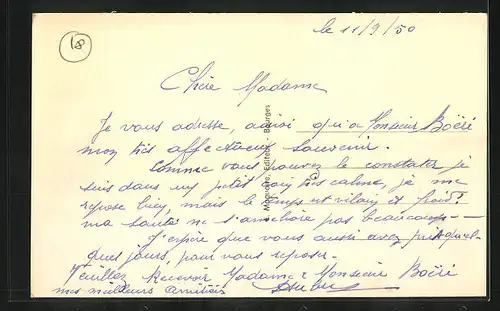 18
le 11/9/50
Chère Madame
Je vous adresse, ainsi qu'a Monsieur Boëri
mon très affectueux souvenir.
Comme vous pouvez le constater je
suis dans un petit coin très calme, je me
repose bien, mais le temps est vilain et froid!
ma santé ne s'améliore pas beaucoup -
J'espère que vous aussi avez pris quel-
ques jours, pour vous reposer.
Veuillez recevoir Madame & Monsieur Boëri
mes meilleurs amitiés
Editeur - Bourges